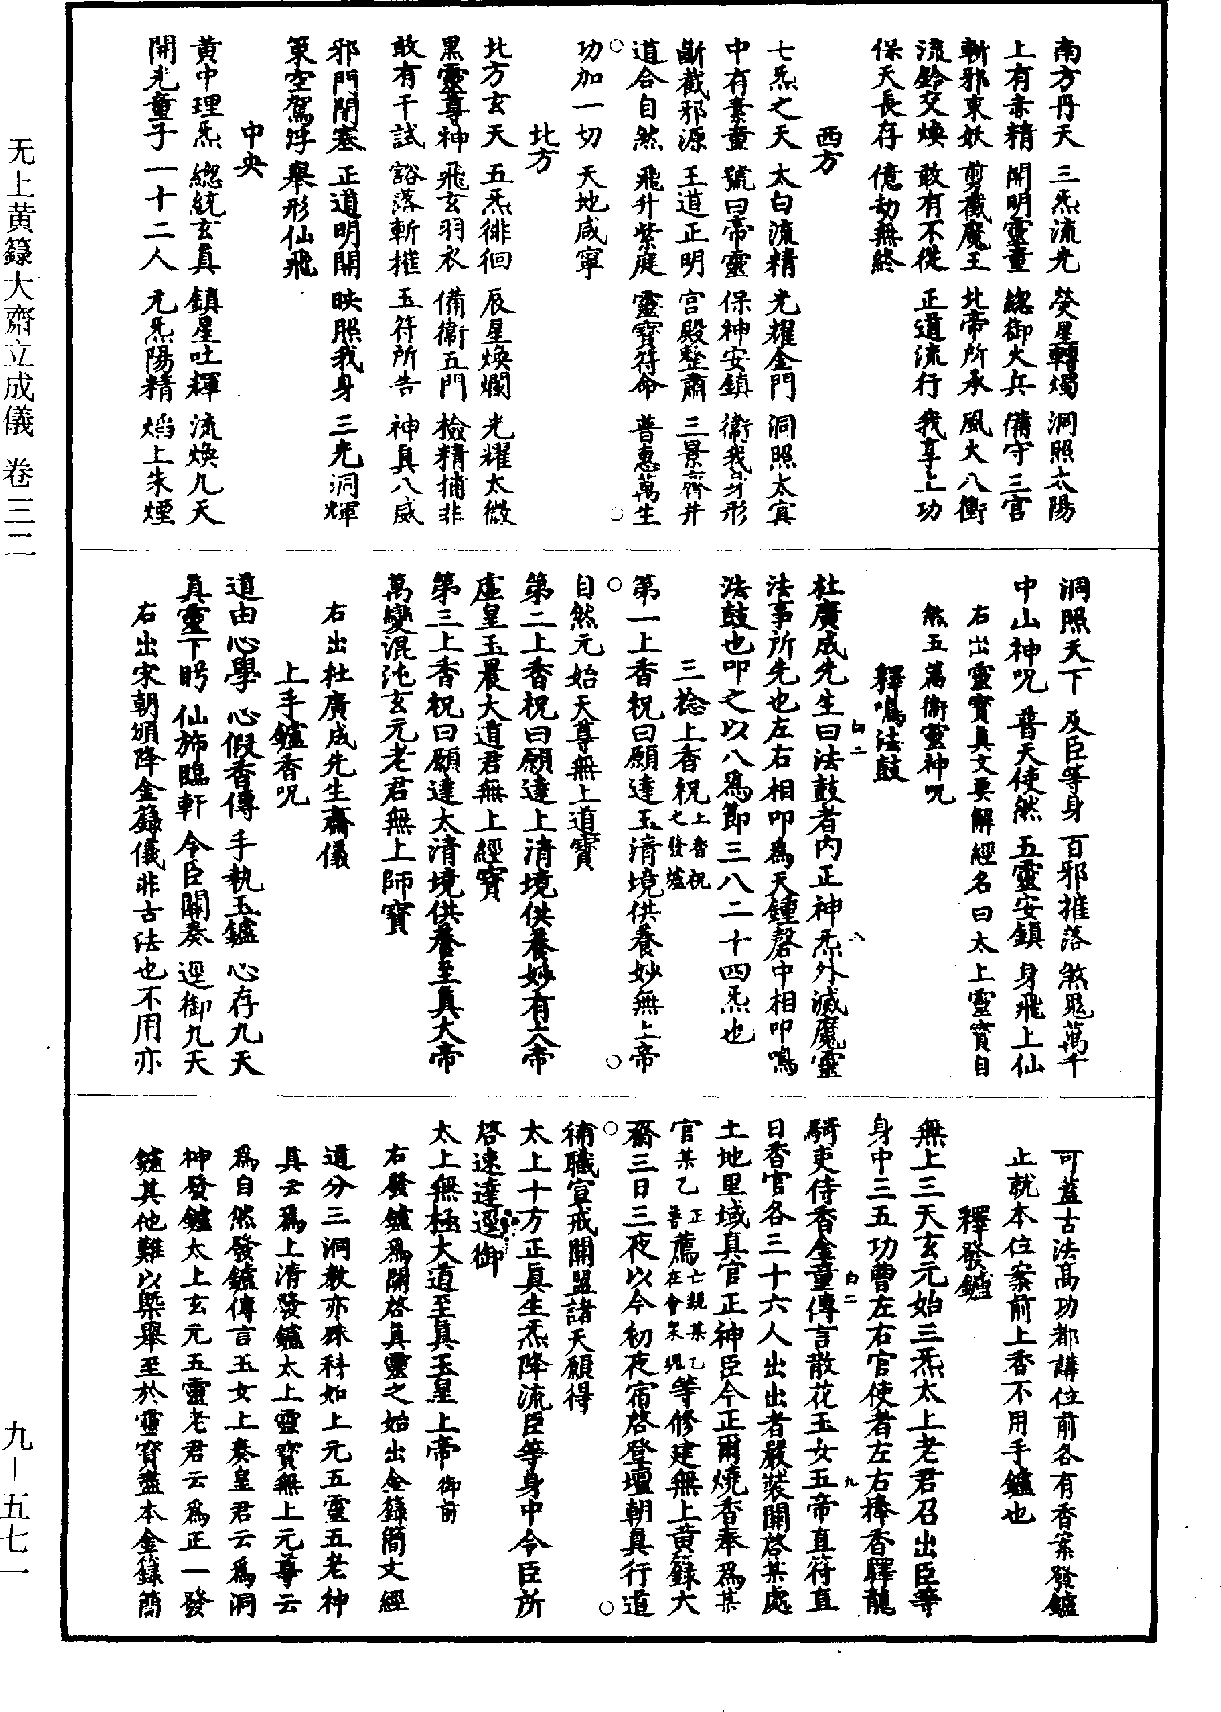 南方丹天 三炁流光 熒星轉燭 洞照太陽
上有赤精 開明靈童 總御火兵 備守三宮
斬邪束妖 剪截魔王 北帝所承 風火八衝
流鈴交煥 敢有不從 正道流行 我享上功
保天長存 億劫無終
西方
七炁之天 太白流精 光耀金門 洞照太冥
中有素童 號曰帝靈 保神安鎮 衛我身形
斷截邪源 王道正明 宮殿整肅 三景齊并
道合自然 飛升紫庭 靈寶符命 普惠萬生
功加一切 天地咸寧
北方
北方玄天 五炁徘徊 辰星煥爛 光耀太微
黑靈尊神 飛玄羽衣 備衛五門 檢精捕非
敢有干試 豁落斬摧 玉符所告 神真八威
邪門閉塞 正道明開 映照我身 三光洞輝
策空駕浮 舉形仙飛
中央
黃中理炁 總統玄真 鎮星吐輝 流煥九天
開光童子 一十二人 元炁陽精 焰上朱煙
洞照天下 及臣等身 百邪摧落 煞鬼萬千
中山神呪 普天使然 五靈安鎮 身飛上仙
右出靈寶真文要解經名曰太上靈寶自
然五篇衛靈神呪
釋鳴法鼓
杜廣成先生曰法鼓者內正神炁外滅魔靈
法事所先也左右相叩爲天鍾磬中相叩鳴
法鼓也叩之以八爲節三八二十四炁也
三捻上香祝上香祝之發爐
第一上香祝曰願達玉清境供養妙無上帝
自然元始天尊無上道寶
第二上香祝曰願達上清境供養妙有上帝
虛皇玉晨大道君無上經寶
第三上香祝曰願達太清境供養至真大帝
萬變混沌玄元老君無上師寶
右出杜廣成先生齋儀
上手鑪香呪
道由心學 心假香傳 手執玉鑪 心存九天
真靈下盻 仙旆臨軒 令臣關奏 逕御九天
右出宋朝頒降金籙儀非古法也不用亦
可蓋古法高功都講位前各有香案發鑪
止就本位案前上香不用手鑪也
釋發鑪
無上三天玄元始三炁太上老君召出臣等
身中三五功曹左右官使者左右捧香驛龍
騎吏侍香金童傳言散花玉女五帝直符直
日香官各三十六人出出者嚴裝關啓某處
土地里域真官正神臣今正爾燒香奉爲某
官某乙正薦亡親某乙等修建無上黃籙大
齋三日三夜以今初夜宿啓登壇朝真行道
補職宣戒關盟諸天願得
太上十方正真生炁降流臣等身中令臣所
啓速達逕御
太上無極大道至真玉皇上帝御前
右發鑪爲開啓真靈之始出金籙簡文經
道分三洞教亦殊科如上元五靈五老神
真云爲上清發鑪太上靈寶無上元尊云
爲自然發鑪傳言玉女上奏皇君云爲洞
神發鑪太上玄元五靈老君云爲正一發
鑪其他難以槩舉至於靈寶盡本金籙簡
无上黄籙大齋立成儀 卷三二
九－五七一